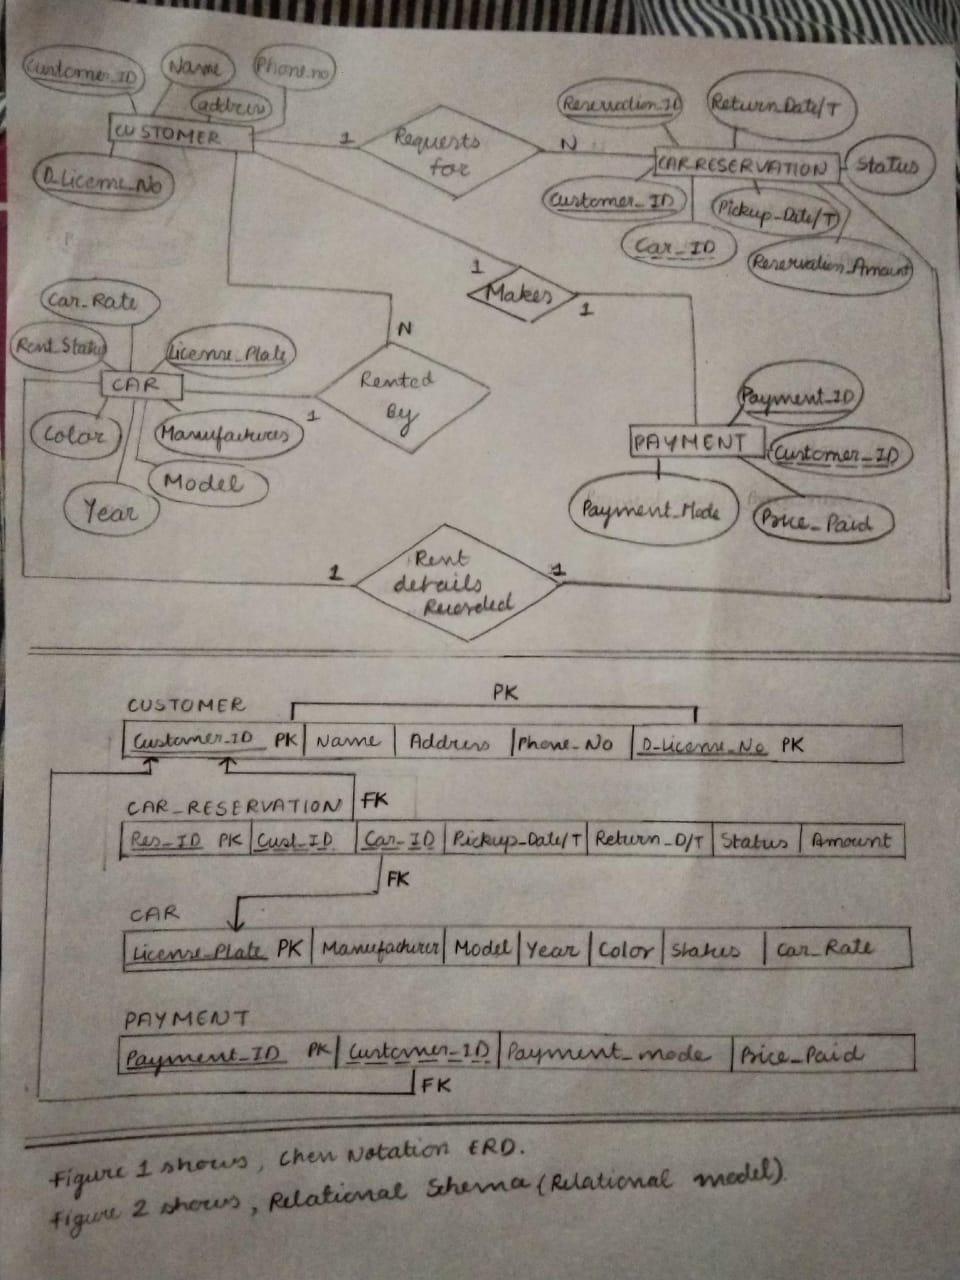 Customer_ID
Name
Phone.no
address
CUSTOMER
D-License_No
1
Requests
for
N
Reservation_ID
Return_Date/T
CAR RESERVATION
Status
Customer_ID
Pickup_Date/T
Car_ID
Reservation_Amount
1
Makes
1
Car_Rate
Rent_Status
License_Plate
CAR
Color
Manufacturers
Model
Year
N
Rented
By
1
Payment_ID
PAYMENT
Customer_ID
Payment_Mode
Price_Paid
1
Rent
details
Recorded
1
PK
CUSTOMER
Customer_ID PK Name Address Phone_No D_License_No PK
CAR_RESERVATION FK
Res_ID PK Cust_ID Car_ID Pickup_Date/T Return_D/T Status Amount
FK
CAR
License_Plate PK Manufacturer Model Year Color Status Car_Rate
PAYMENT
Payment_ID PK Customer_ID Payment_mode Price_Paid
FK
Figure 1 shows, Chen Notation ERD.
Figure 2 shows, Relational Schema (Relational model).